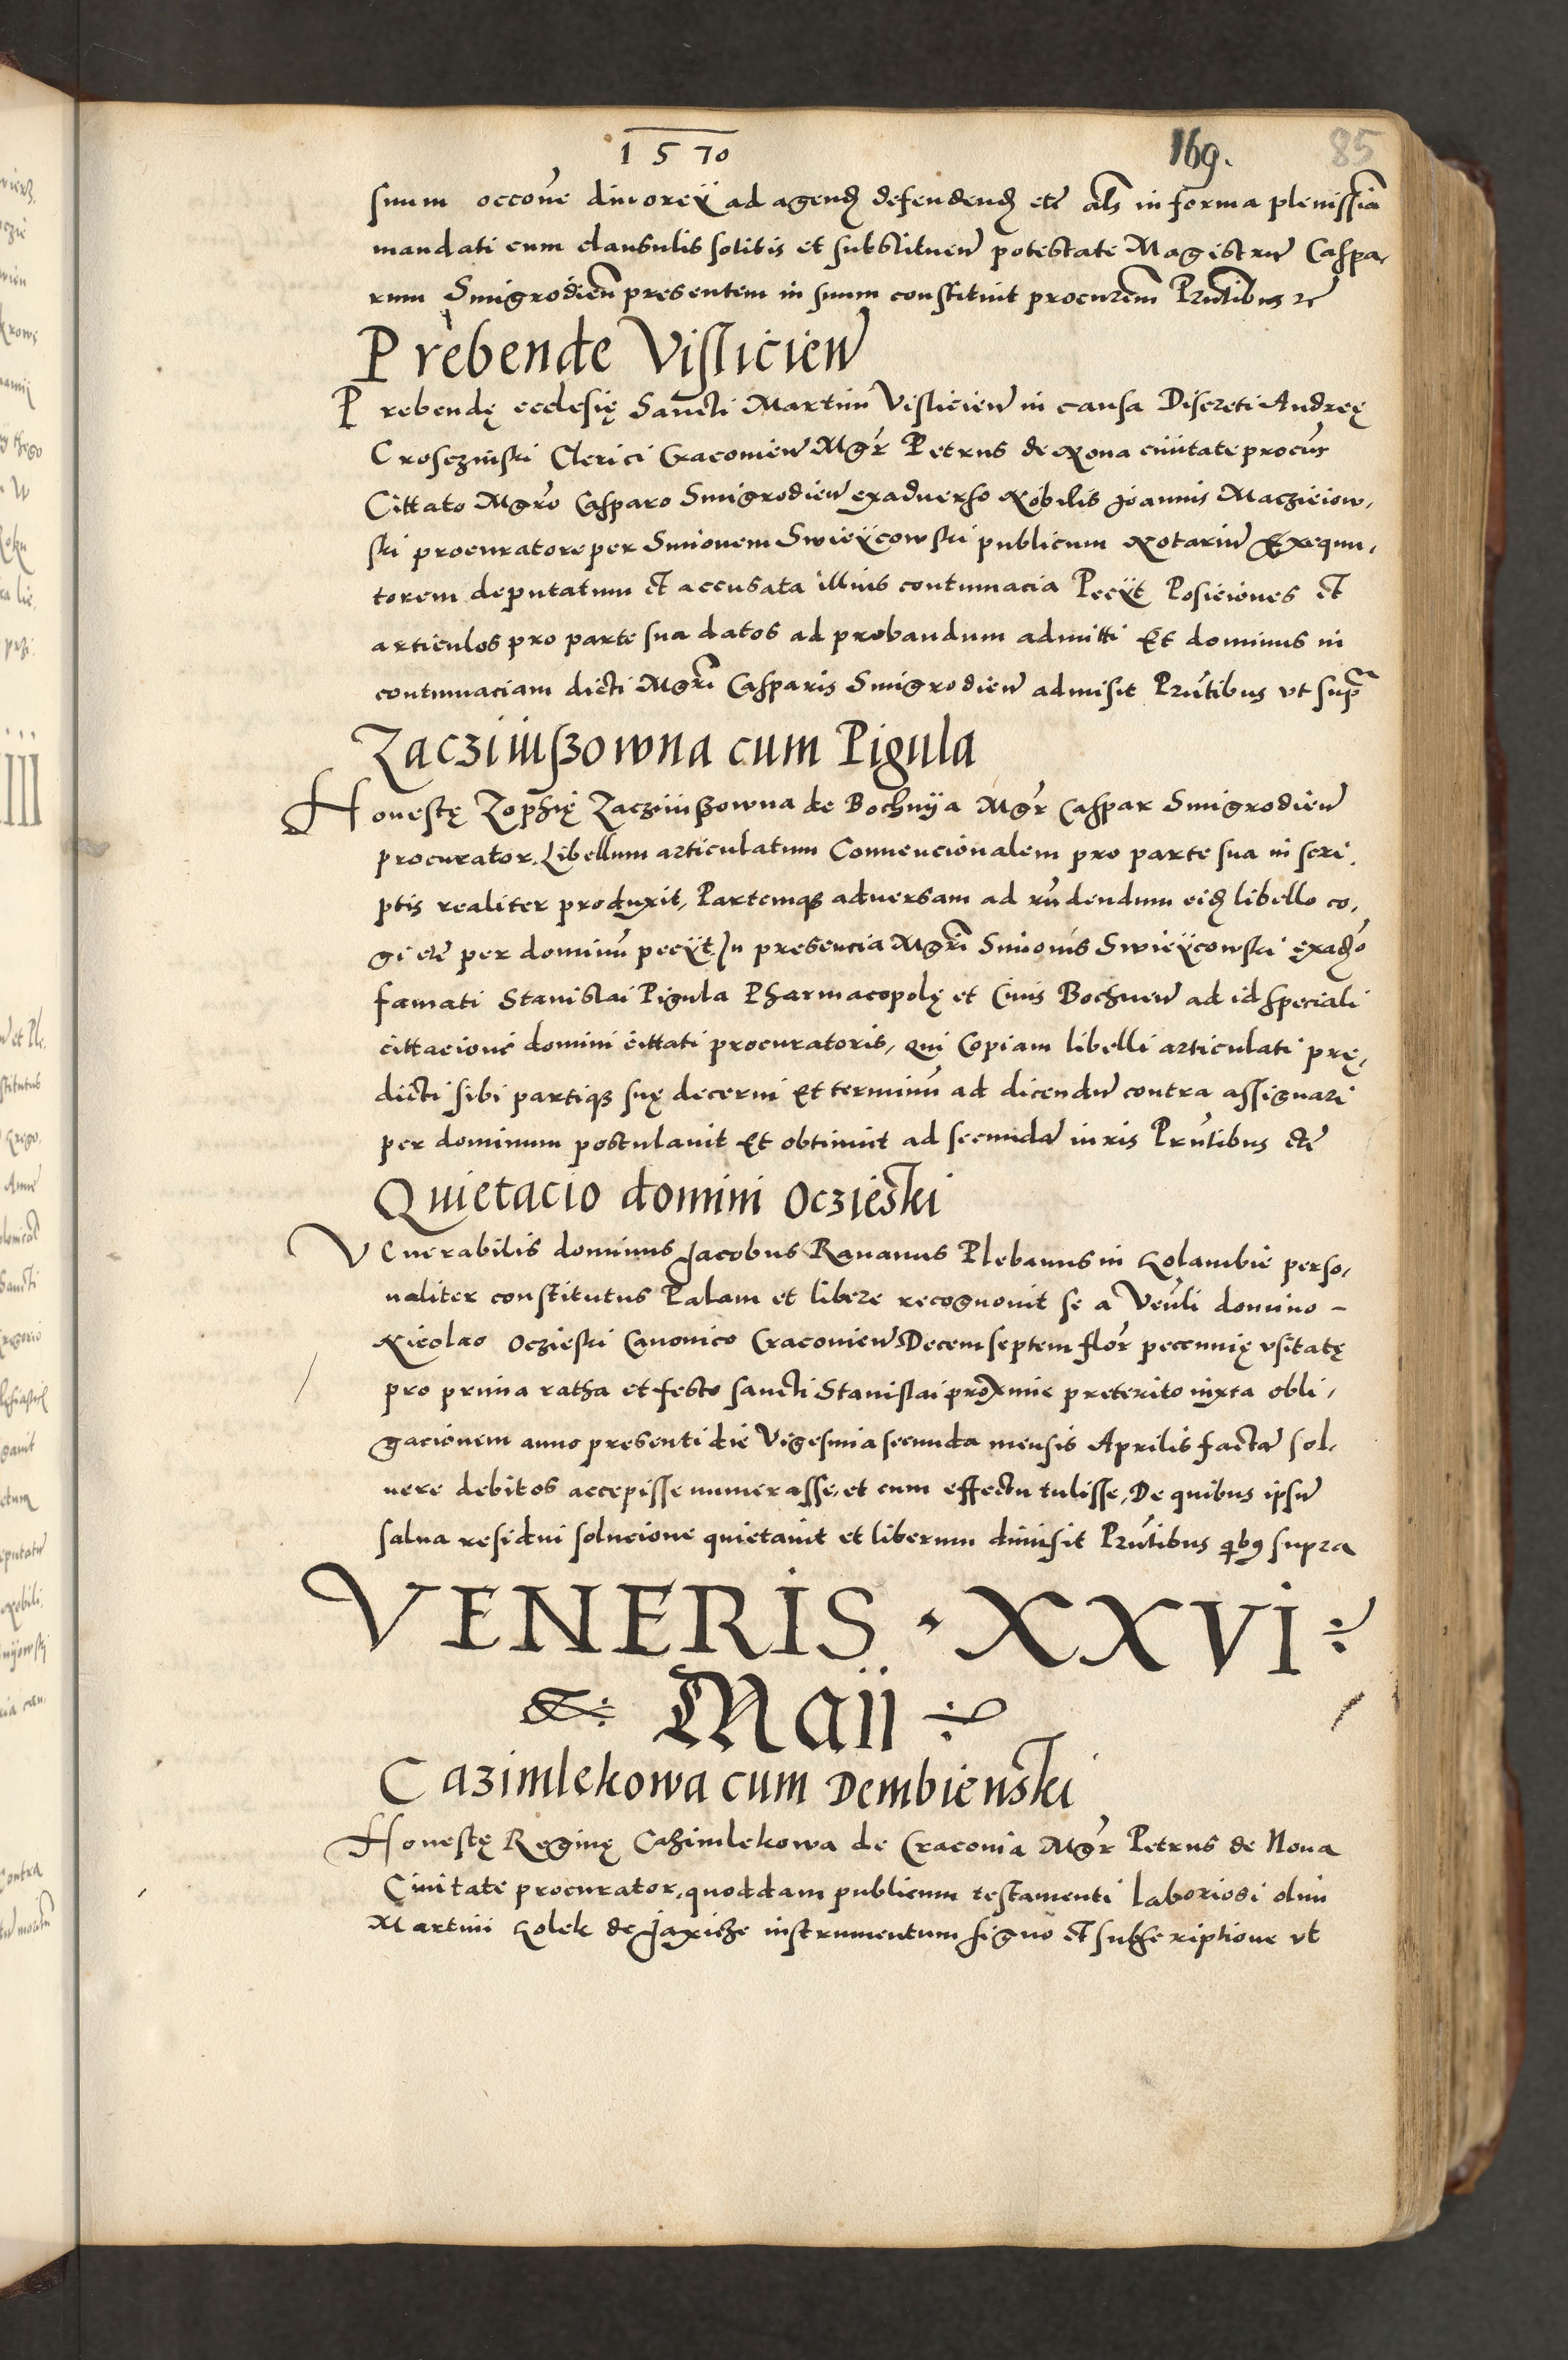 1570 169. 85
suum occoñe diuorcÿ ad agend defendend etc̃ als in forma plenissia
mandati cum clausulis solitis et substituen̄ potestate Magistrū Caspa,
rum Smigrodień presentem in suum constituit procurēm Prñtibus
Prebende Visliciēn
Prebendę ecclesię Sancti Martini Visliciēn in causa Discreti Andreę
Crosczinski Clerici Cracouiēn Mgr̃ Petrus de Noua ciuitate procur̃
Cittato Mgrõ Casparo Smigrodiēn exaduerso Nobilis Joannis Maczieiow,
ski procuratore per Simonem Swieÿcowski publicum Notariū Exequu,
torem deputatum et accusata illius contumacia Pecÿt Posiciones et
articulos pro parte sua datos ad probandum admitti Et dominus in
contumaciam dicti Mgrĩ Casparis Smigrodiēn admisit Prñtibus vt supra
Zacziiußowna cum Pigula
Honestę Zophię Zacziiußowna de Bochnÿa Mgr̃ Caspar Smigrodiēn
procurator Libellum articulatum Conuencionalem pro parte sua in scri,
ptis realiter produxit, Partemq3 aduersam ad rñdendum eid libello co,
gi etc̃ per dominū pecÿt. In presencia Mgrĩ Simonis Swieÿcowski exadũo
famati Stanislai Pigula Pharmacopolę et Ciuis Bochnēn ad id speciali
cittacione domini cittati procuratoris, qui Copiam libelli articulati prę,
dicti sibi partiq3 suę decerni Et terminū ad dicendū contra assignari
per dominum postulauit Et obtinuit ad secundā iuris Prñtibus etc̃
Quietacio domini Oczieski
Venerabilis dominus Jacobus Rauanus Plebanus in Golambie perso,
naliter constitutus Palam et libere recognouit se a Veñli domino –
Nicolao Oczieski Canonico Cracouiēn Decem septem flor̃ pecunnię vsitatę
pro prima ratha et festo sancti Stanislai proxime preterito iuxta obli,
gacionem anno presenti die Vigesima secunda mensis Aprilis factā sol,
uere debitos accepisse numerasse, et cum effectu tulisse, De quibus ipsū
salua residui solucione quietauit et liberum dimisit Prñtibus qib9 supra
VENERIS · XXVI ÷
Maii ÷
Cazimlekowa cum Dembienski
Honestę Reginę Cazimlekowa de Cracouia Mgr̃ Petrus de Noua
Ciuitate procurator, quoddam publicum testamenti laboriosi olim
Martini Golek de Jaxicze instrumentum signo et subscriptione vt